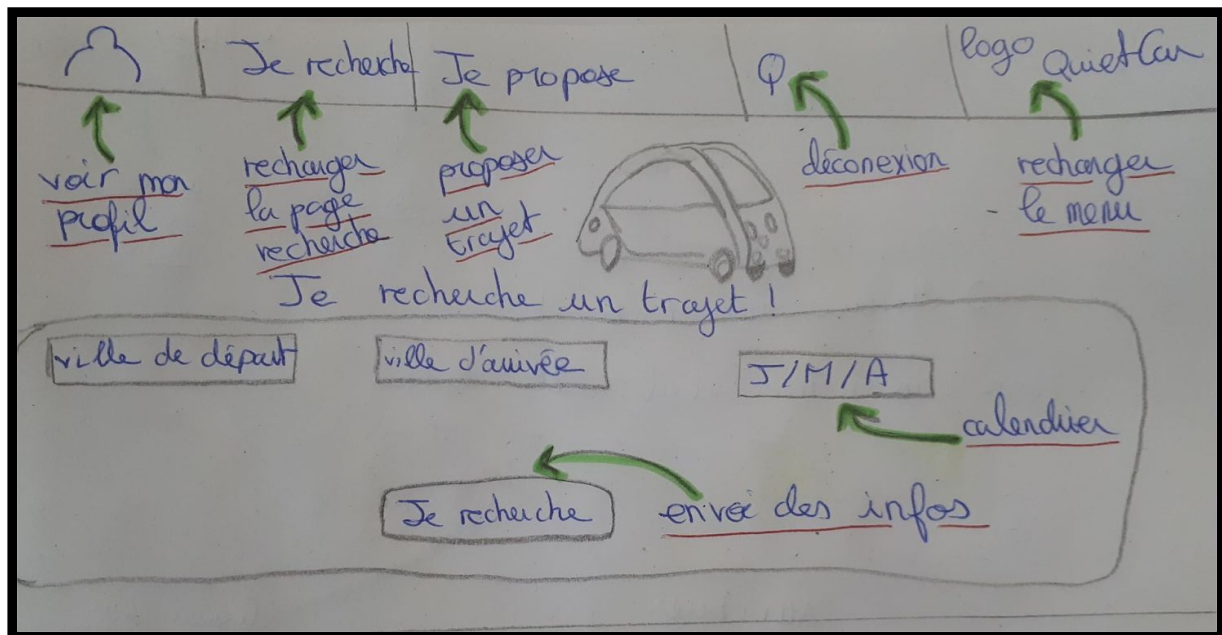 Je recherche
Je propose
logo QuietCar
voir mon
profil
recharger
la page
recherche
proposer
un
trajet
déconexion
recharger
le menu
Je recherche un trajet !
ville de départ
ville d'arrivée
J/M/A
calendrier
Je recherche
envoi des infos